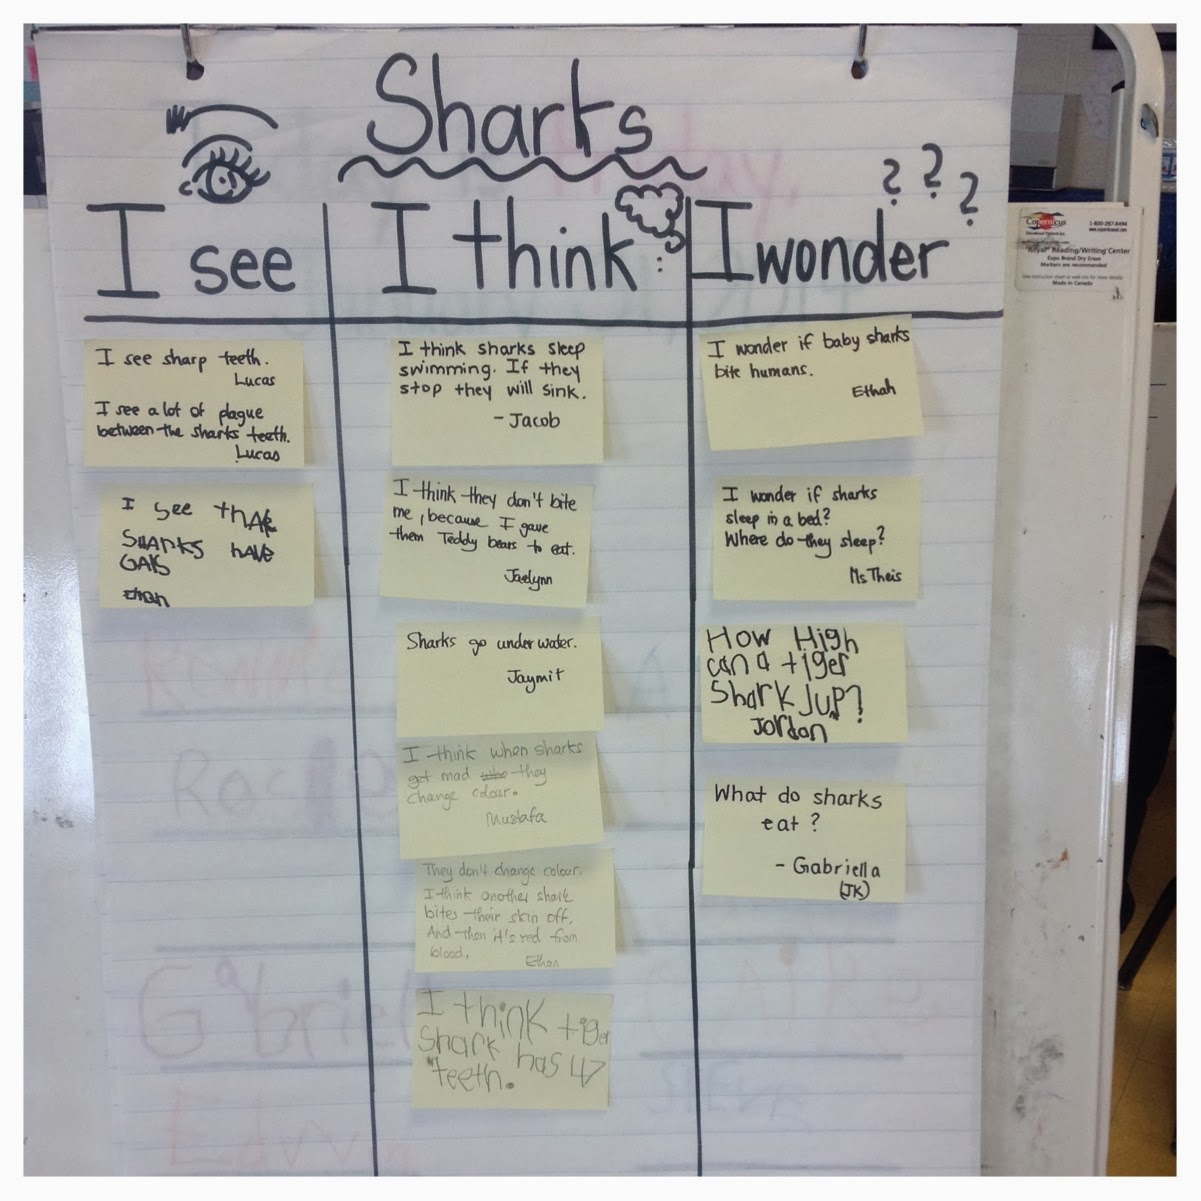 Sharks
? ? ?
I see
I see sharp teeth.
Lucas
I see a lot of plague
between the sharks teeth.
Lucas
I see that
SHARKS HAVE
GALS
Ethan
I think :
I think sharks sleep
swimming. If they
stop they will sink.
- Jacob
I think they don't bite
me, because I gave
them Teddy bears to eat.
Jaelynn
Sharks go under water.
Jaymit
I think when sharks
get mad they
change colour.
Mustafa
They don't change colour.
I think another shark
bites their skin off.
And then it's red from
blood.
Ethan
I think tiger
Shark has 47
teeth.
I wonder
I wonder if baby sharks
bite humans.
Ethan
I wonder if sharks
sleep in a bed?
Where do they sleep?
Ms Theis
How High
can a tiger
Shark JUP?
Jordan
What do sharks
eat ?
- Gabriella
(JK)
Copernicus
1-800-267-8494
"Royal" Reading/Writing Center
Expo Brand Dry Erase
Markers are recommended
Made in Canada